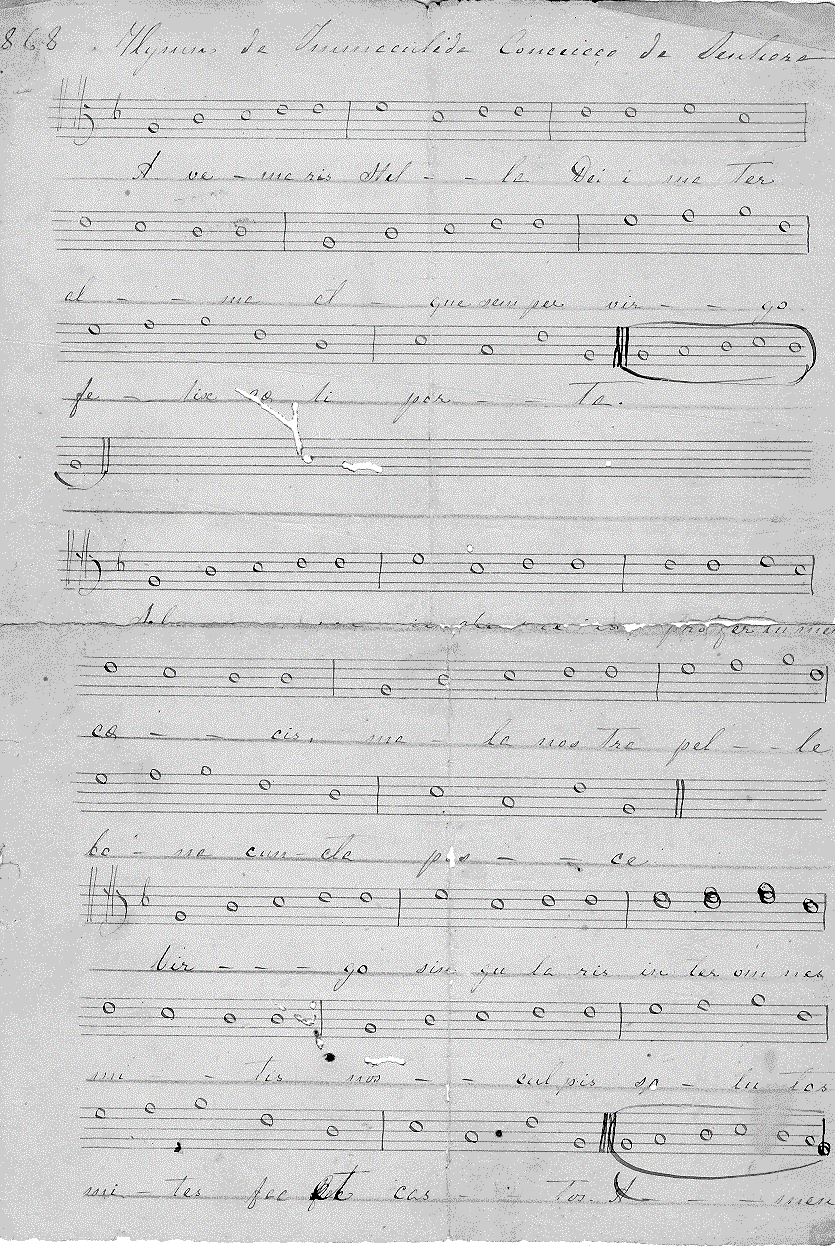 868. Hymnus da Immaculida Conceiçaõ da Senhora
A ve - ma ris Stel - - la Dei i ma Ter
al - - ma at - que sem per vir - - go
fe - lix cœ li por - - Ta.
pro fer lu me
cœ - - cis. ma - la nos tra pel - - le
bo - na cun - cta pos - - ce
Vir - - - go sin gu la ris in ter om nes
mi - - tis nos - - cul pis so - lu tos
mi - tes fac et cas - - tos. A - - - men